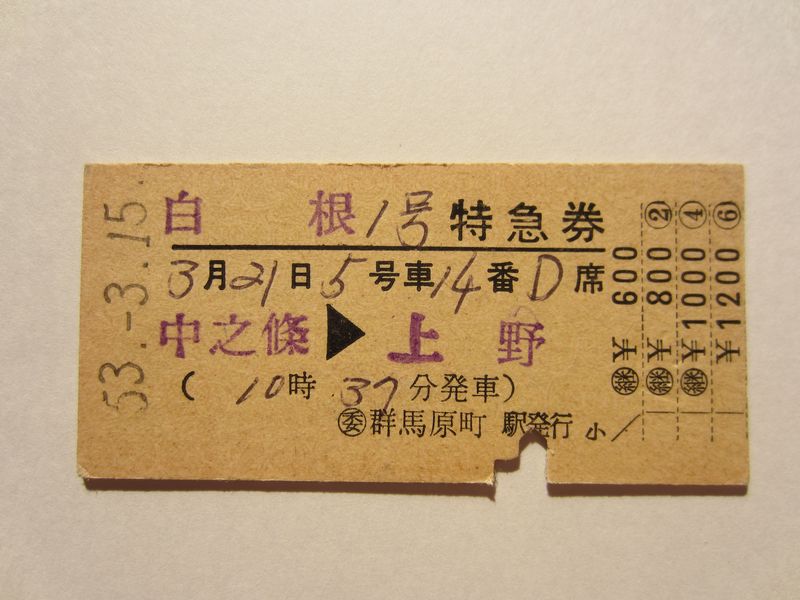 53.-3.15.
白根1号特急券
3月21日5号車14番D席
中之條▶上野
(10時37分発車)
㊙群馬原町駅発行 小
㋿¥600
㋿¥800②
㋿¥1000④
¥1200⑥